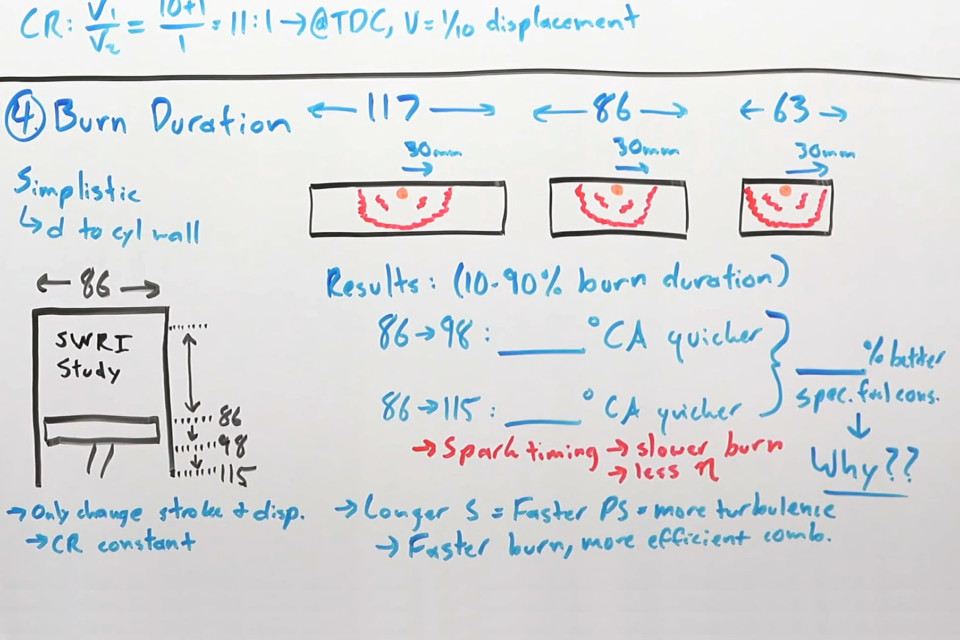 CR: V1/V2 = 10+1/1 = 11:1 → @TDC, V = 1/10 displacement
4. Burn Duration
← 117 →
← 86 →
← 63 →
30mm
30mm
30mm
Simplistic
↳ d to cyl wall
← 86 →
SWRI
Study
86
98
115
→ Only change stroke & disp.
→ CR constant
Results: (10-90% burn duration)
86→98: ______ °CA quicker
86→115: ______ °CA quicker
→ Spark timing → slower burn
→ less η
______ % better
spec. fuel cons.
Why??
→ Longer S = Faster PS = more turbulence
→ Faster burn, more efficient comb.